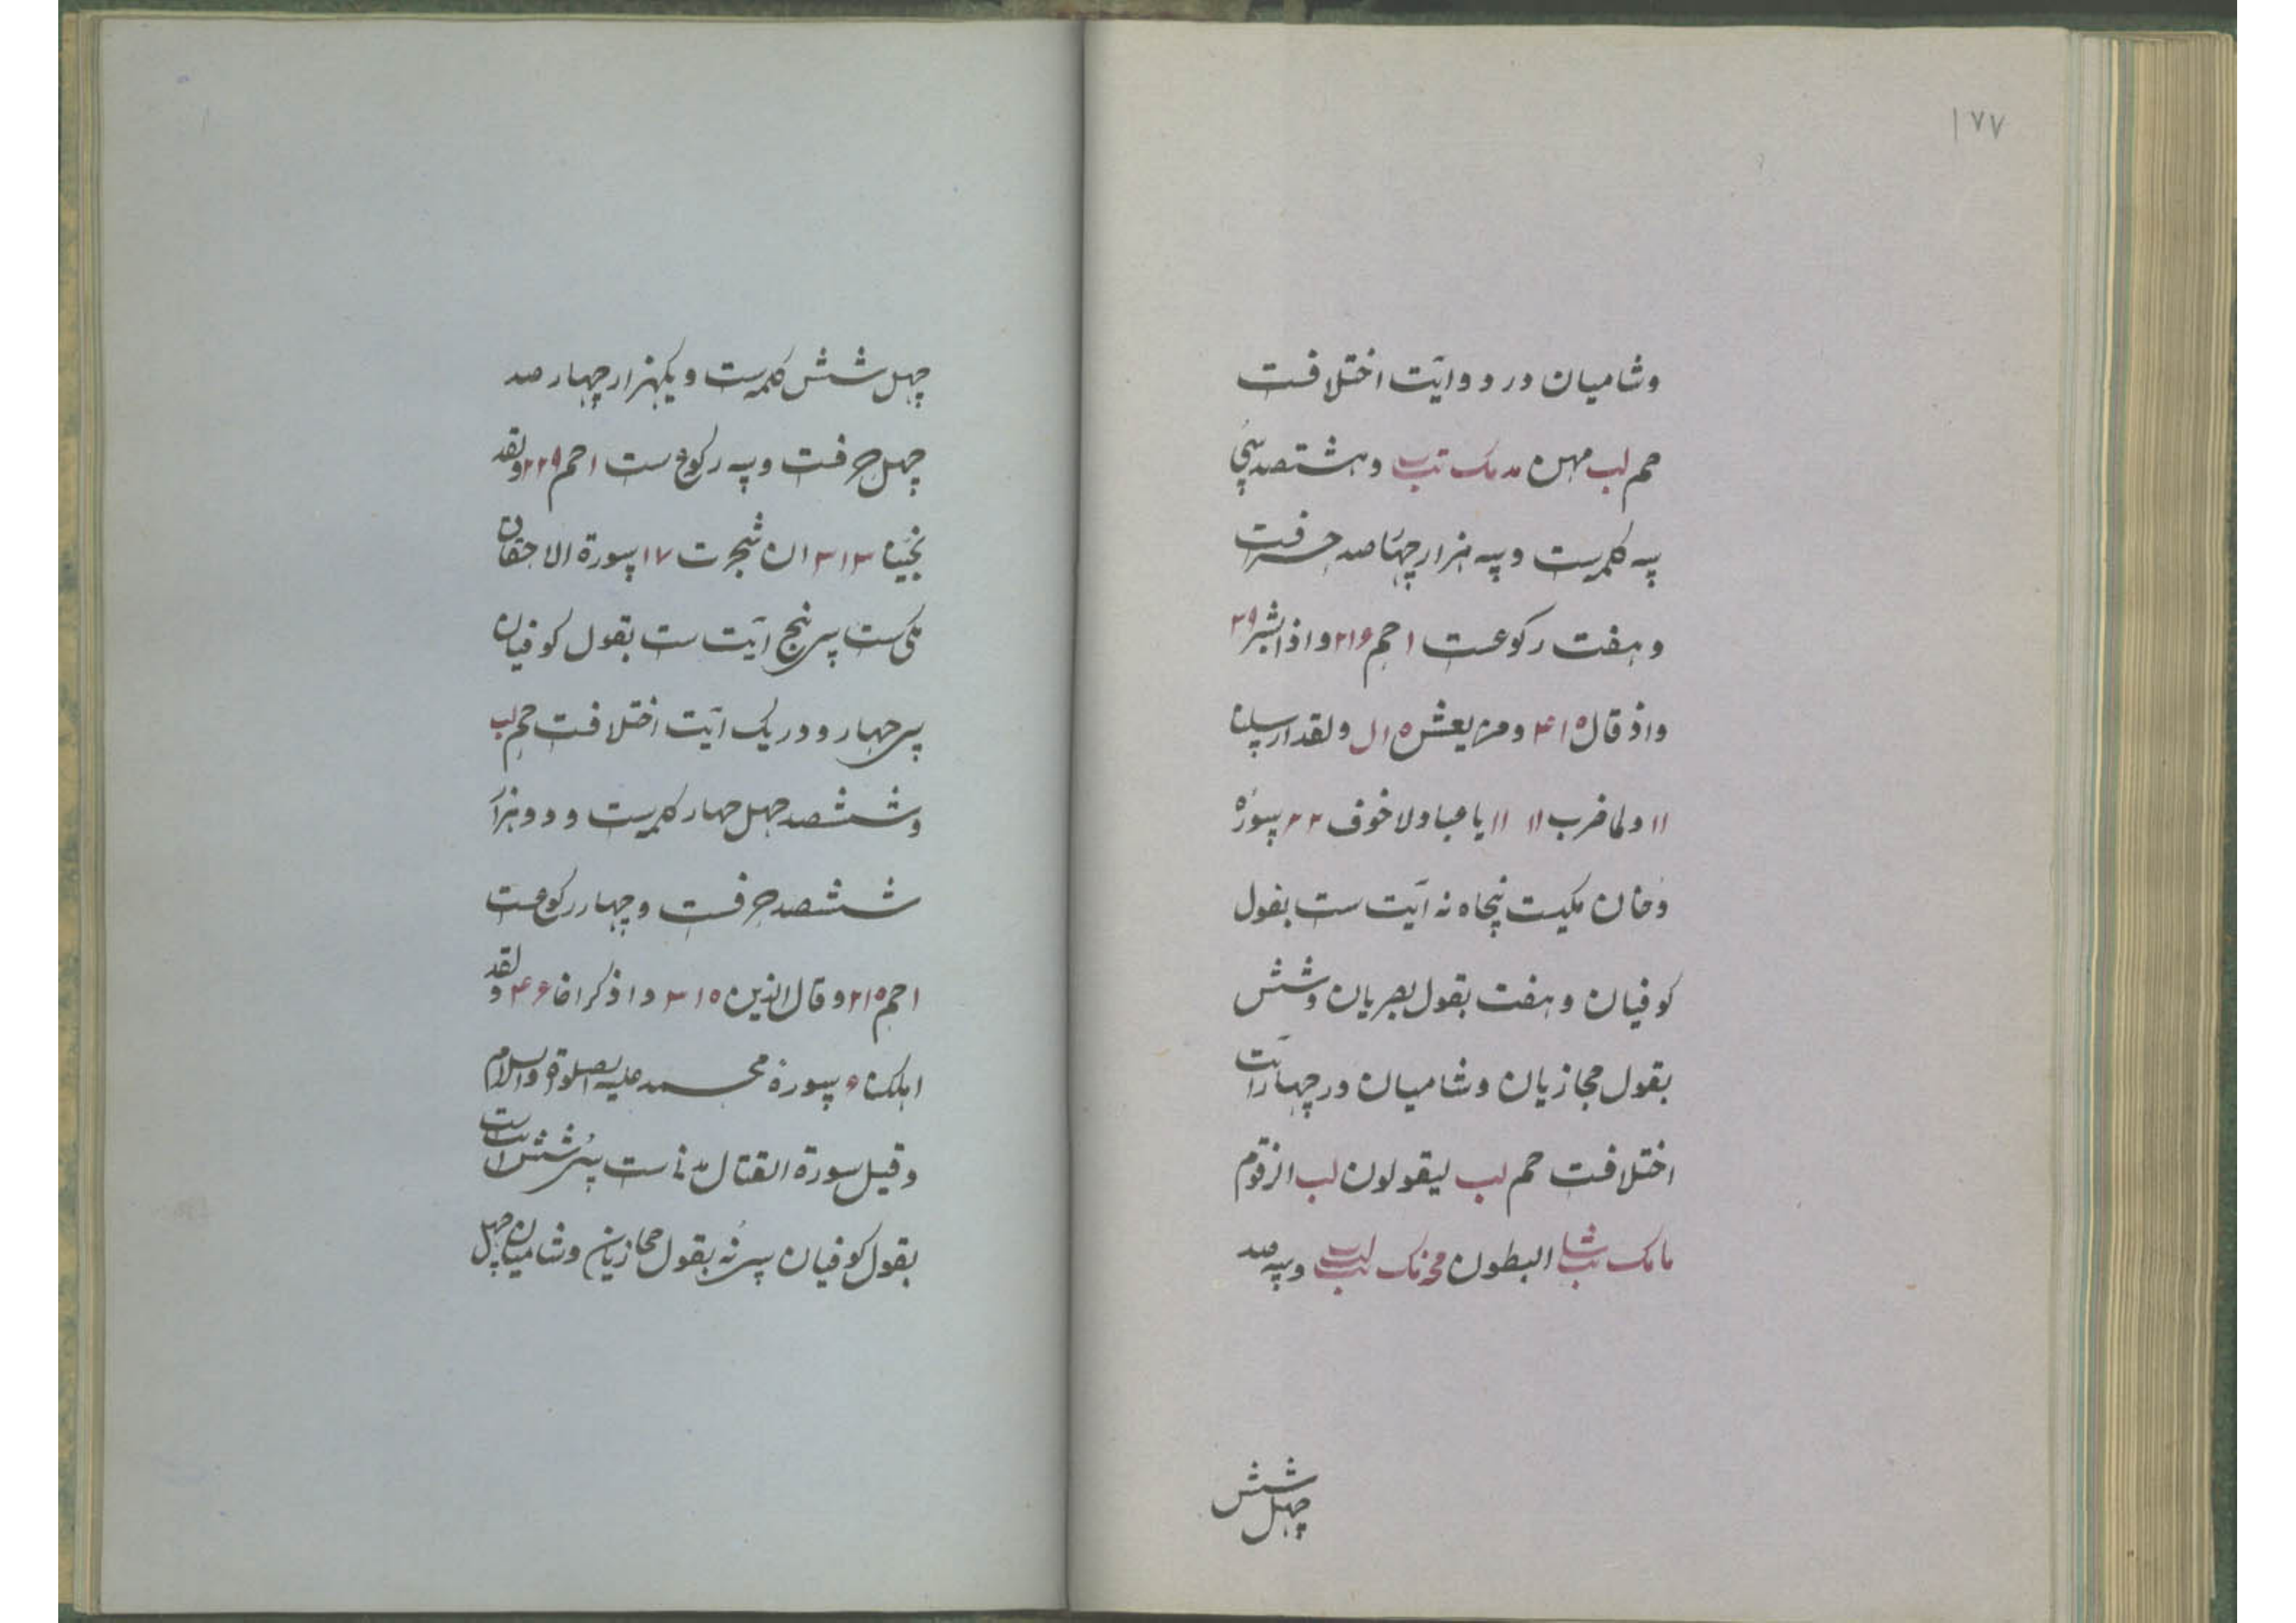 ۱۷۷
وشامیان در دو ایت اختلافست
حم لب مهین مدمک تب وهشتصد سی
سه کلمه ست و سه هزار چهار صد حرفست
و هفت رکوعست ا حم ۲۱۶ و اذا بشر ۲۹
واذ قال ۴۱۵ ومن یعش ۱۵ل ولقد ارسلنا
۱۱ ولما ضرب ۱۱ ۱۱ یا عباد لا خوف ۲۲ سورة
دخان مکیست پنجاه نه ایت ست بقول
کوفیان و هفت بقول بصریان وشش
بقول حجازیان وشامیان در چهار ایت
اختلافست حم لب لیقولون لب الزقوم
مامک شا تب البطون مک لب تب وسه صد
چهل شش
چهل شش کلمه ست و یکهزار چهار صد
چهل حرفست وسه رکوع ست ا حم ۲۲۹ ولقد
نجینا ۳۱۳ ان شجرت ۱۷ سورة الاحقاف
مکی ست سی پنج ایت ست بقول کوفیان
سی چهار و در یک ایت اختلافست حم لب
وششصد چهل چهار کلمه ست و دو هزار
ششصد حرفست و چهار رکوعست
ا حم ۲۱۵ وقال الذین ۳۱۵ واذکر اخا ۴۶ ولقد
اهلکنا ۹ سورة محمد علیه الصلوة والسلام
وقیل سورة القتال مدنی ست سی شش ایت ست
بقول کوفیان سی نه بقول حجازیان وشامیان چهل